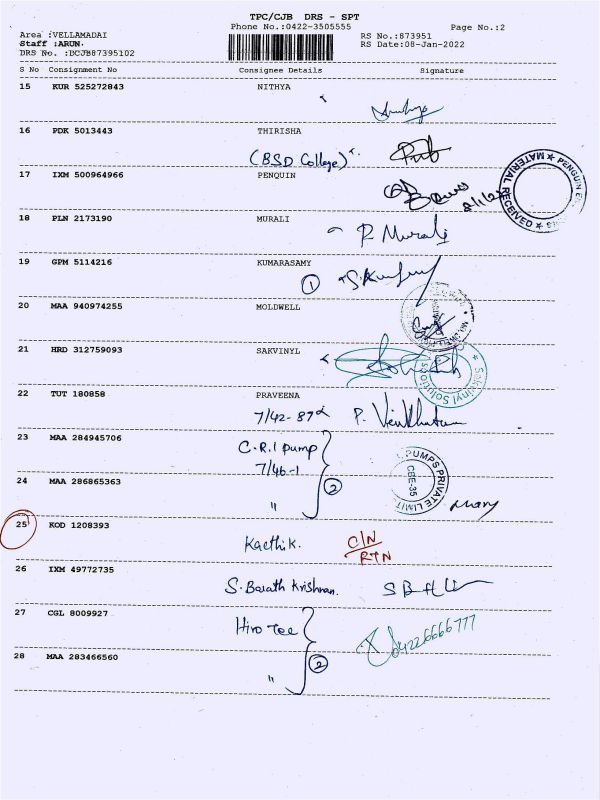 TPC/CJB DRS - SPT
Phone No.:0422-3505555
Page No.:2
Area :VELLAMADAI
Staff :ARUN.
DRS No. :DCJB87395102
RS No.:873951
RS Date:08-Jan-2022
S No Consignment No Consignee Details Signature
15 KUR 525272843 NITHYA
16 PDK 5013443 THIRISHA
(BSD College)
17 IXM 500964966 PENQUIN
8/1/22
MATERIAL RECEIVED ★ PENGUIN
18 PLN 2173190 MURALI
P. Murali
19 GPM 5114216 KUMARASAMY
1
20 MAA 940974255 MOLDWELL
21 HRD 312759093 SAKVINYL
★ Sakvinyl Solutions
22 TUT 180858 PRAVEENA
7/42-87 P. Venkhatam
23 MAA 284945706 C.R.I Pump
7/46-1
PUMPS PRIVATE LIMITED
CBE-35
24 MAA 286865363 "
2
Mary
25 KOD 1208393 Kaethik. C/N
RTN
26 IXM 49772735 S. Barath Krishnan.
27 CGL 8009927 Hiro Tee
04226666777
28 MAA 283466560 "
2